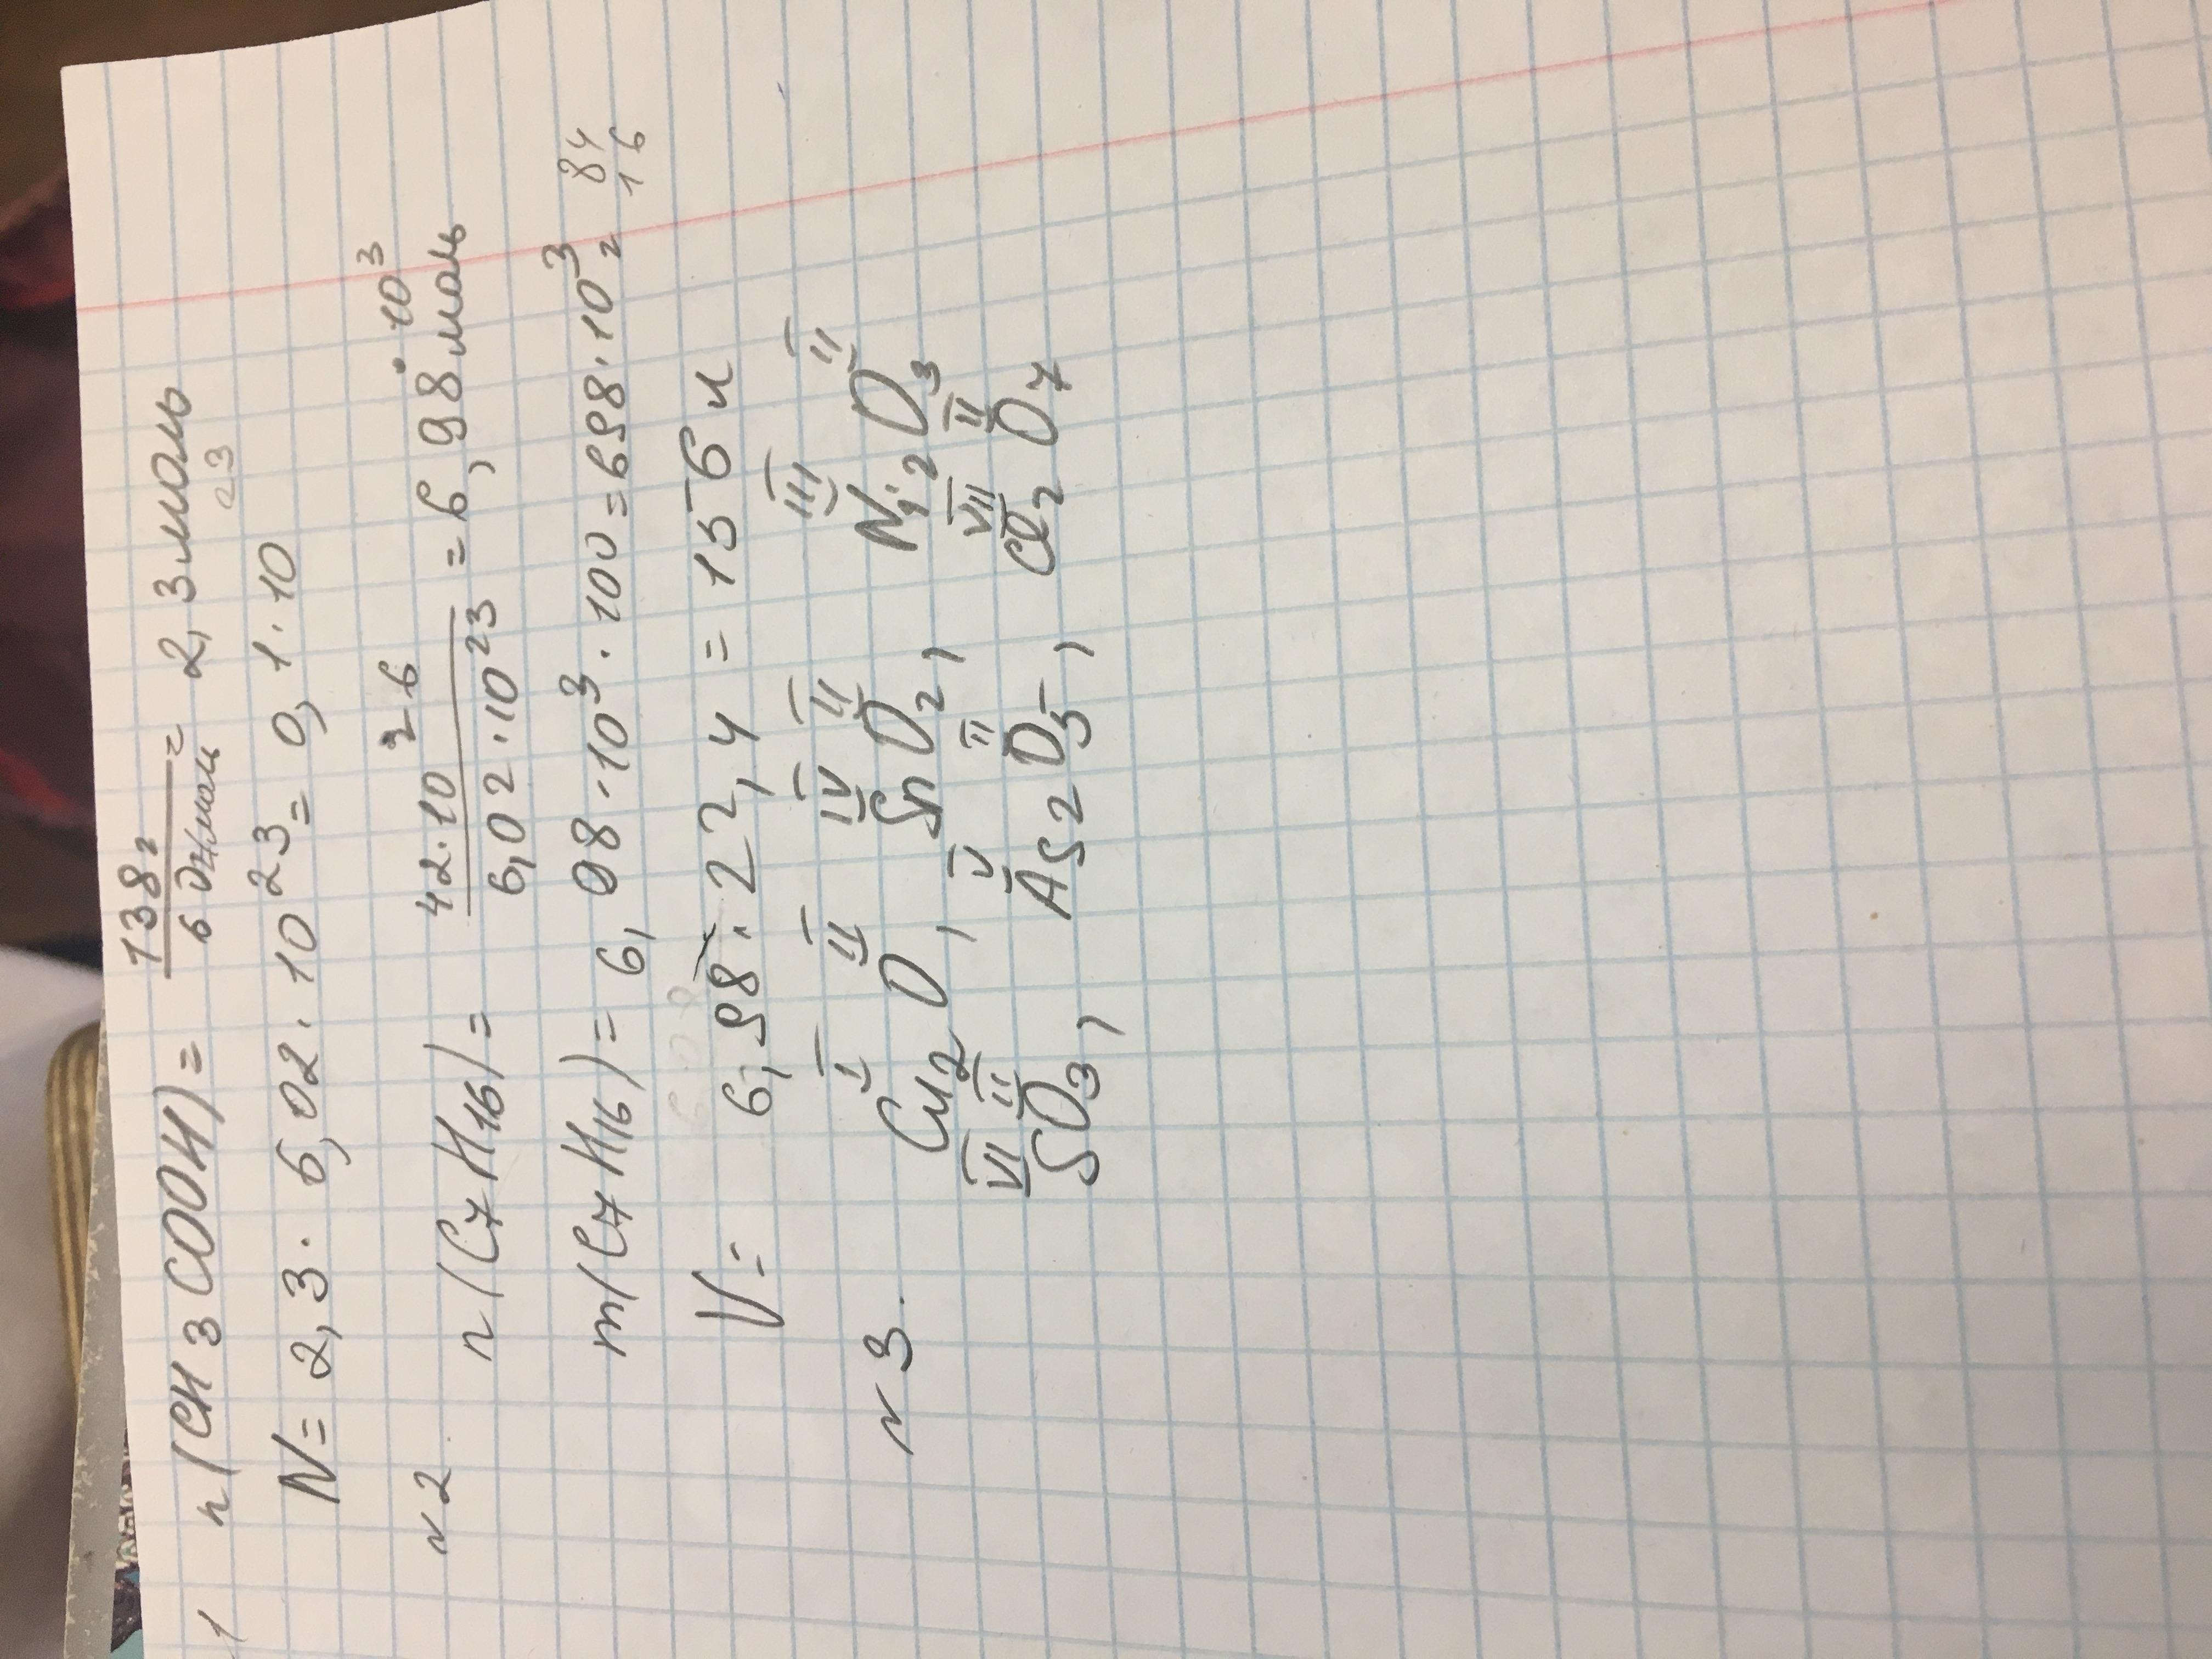 1 n(CH3COOH) = 138г / 60г/моль = 2,3моль
N = 2,3 · 6,02 · 10²³ = 9,1 · 10²³
N2 n(C7H16) = 42·10²⁶ / 6,02·10²³ = 6,98·10³ моль
m(C7H16) = 6,98·10³·100 = 698·10³г 84 16
V = 6,98 · 22,4 = 156 л
N3. Cu₂ᴵOᴵᴵ, SnᴵⱽO₂ᴵᴵ, Ni₂ᴵᴵᴵO₃ᴵᴵ
SⱽᴵO₃ᴵᴵ, As₂ⱽO₅ᴵᴵ, Cl₂ⱽᴵᴵO₇ᴵᴵ